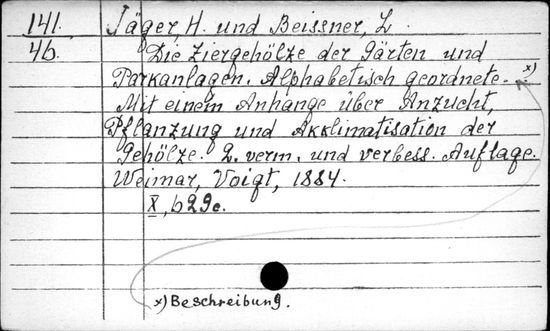 141.
46.
Jäger, H. und Beissner, L.
Die Ziergehölze der Gärten und
Parkanlagen. Alphabetisch geordnete- x)
Mit einem Anhange über Anzucht,
Pflanzung und Akklimatisation der
Gehölze. 2. verm. und verbess. Auflage.
Weimar, Voigt, 1884.
X, 629 c.
x) Beschreibung.